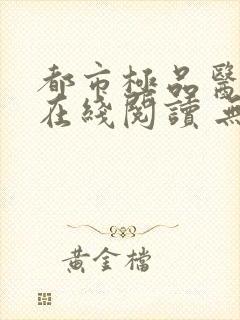 都市極品醫
在綫閱讀 無
黃金檔